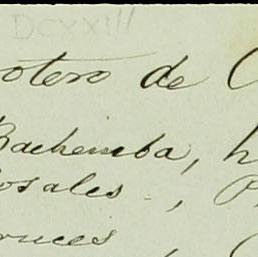 DCXXIII
otero de
Bachemba, h
osales, P
ruces,